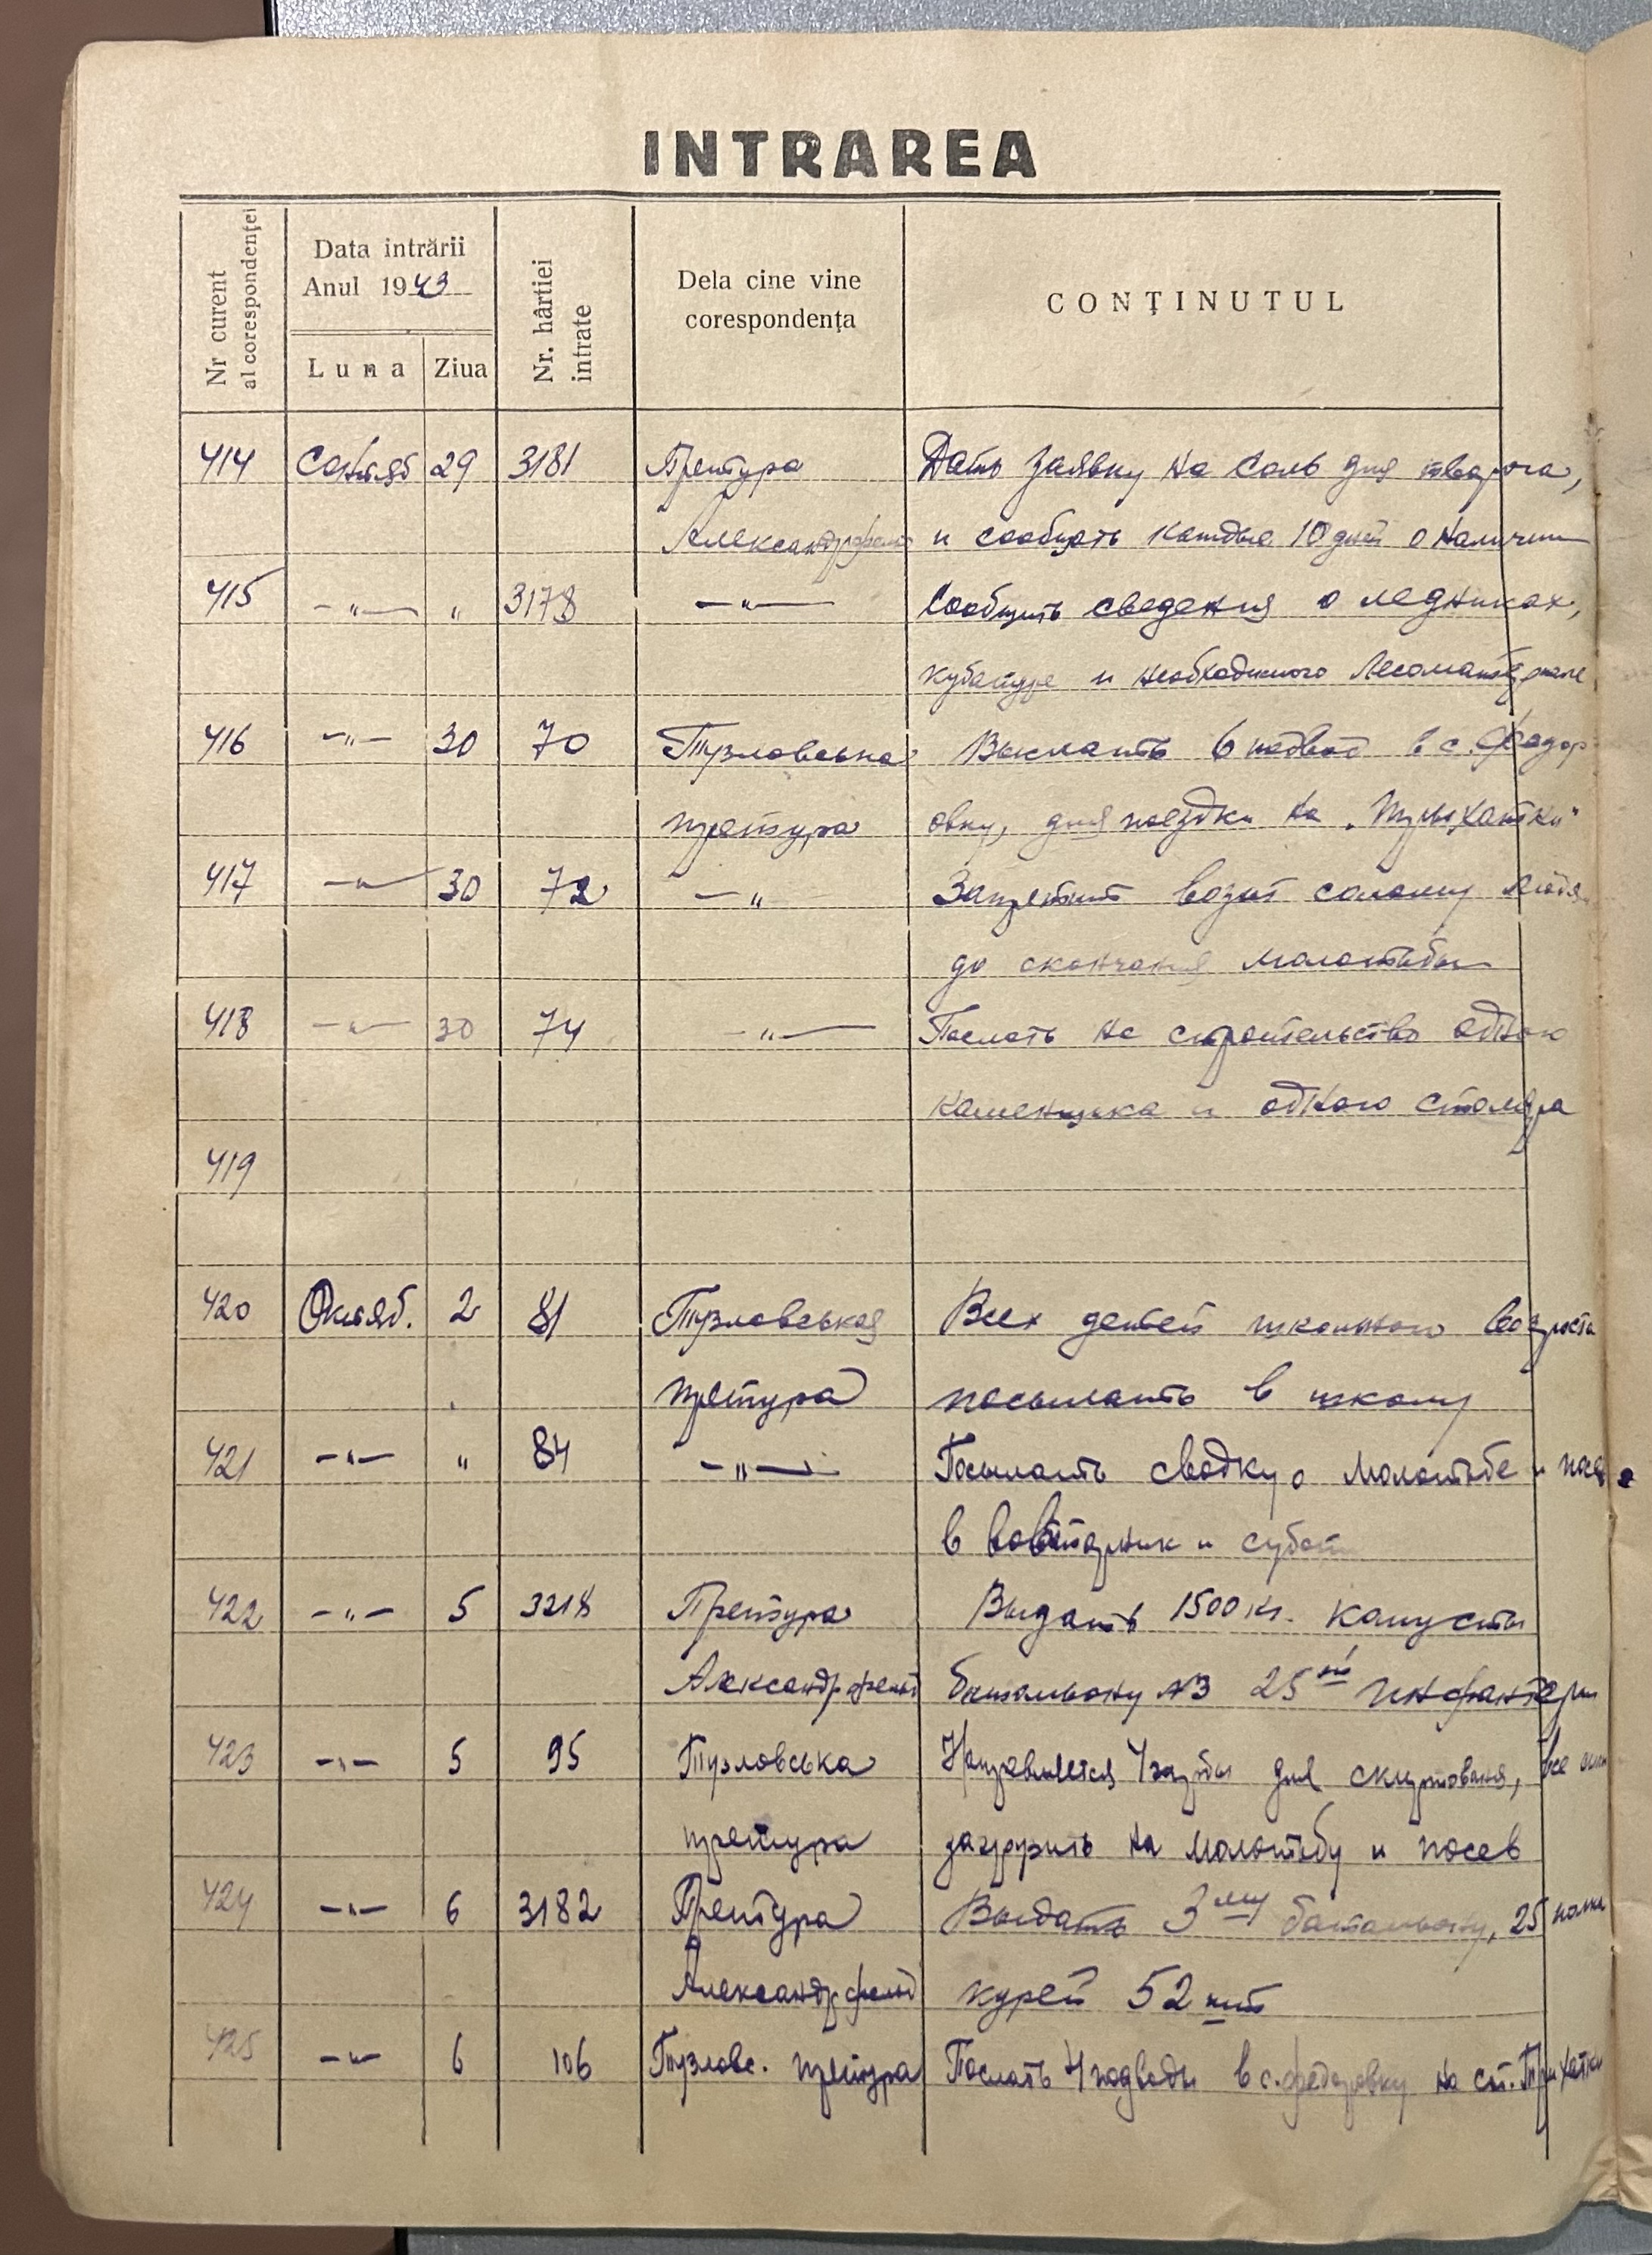 INTRAREA
Nr curent al corespondenței
Data intrării
Anul 1943
Luna
Ziua
Nr. hârtiei intrate
Dela cine vine corespondența
CONȚINUTUL
414 29 3181 Претура Дать заявку на соль для творога,
Александрфельд и сообщать каждые 10 дней о наличии
415 –"– " 3178 –"– Сообщить сведения о ледниках,
кубатуре и необходимого лесоматериале
416 –"– 30 70 Тузловська Выслать 6 подвод в с. Федор
претура овку, для поездки на „Трихатки"
417 –"– 30 72 –"– Запретит возит солому
до скончания молотьбы
418 –"– 30 74 –"– Послать на строительство одного
каменщика и одного столяра
419
420 Октяб. 2 81 Тузловськая Всех детей школьного возроста
претура посылать в школу
421 –"– " 84 –"– Посылать сводку о молотьбе и
в и
422 –"– 5 3218 Претура Выдать 1500 кг. капусты
Александрфельд батальону №3 25ой инфантери
423 –"– 5 95 Тузловська Направляется для скирдования, все
претура на молотьбу и посев
424 –"– 6 3182 Претура Выдать 3му батальону, 25 полка
Александрфельд курей 52 шт
425 –"– 6 106 Тузловс. претура Послать 4 подводы в с. Федоровку на ст. Трихатки